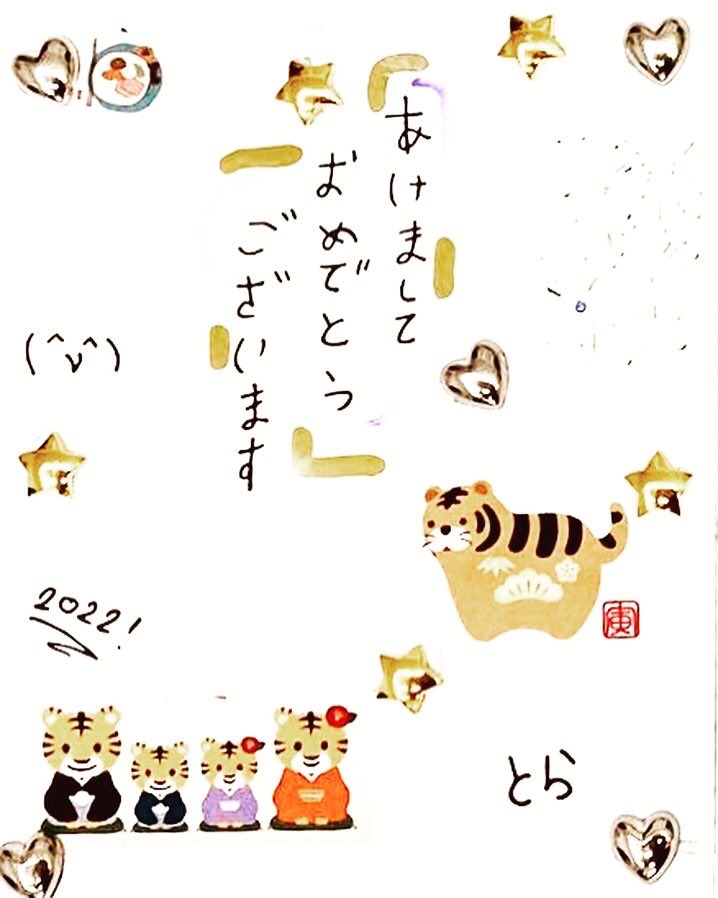 あけまして
おめでとう
ございます
(^v^)
2022!
寅
とら